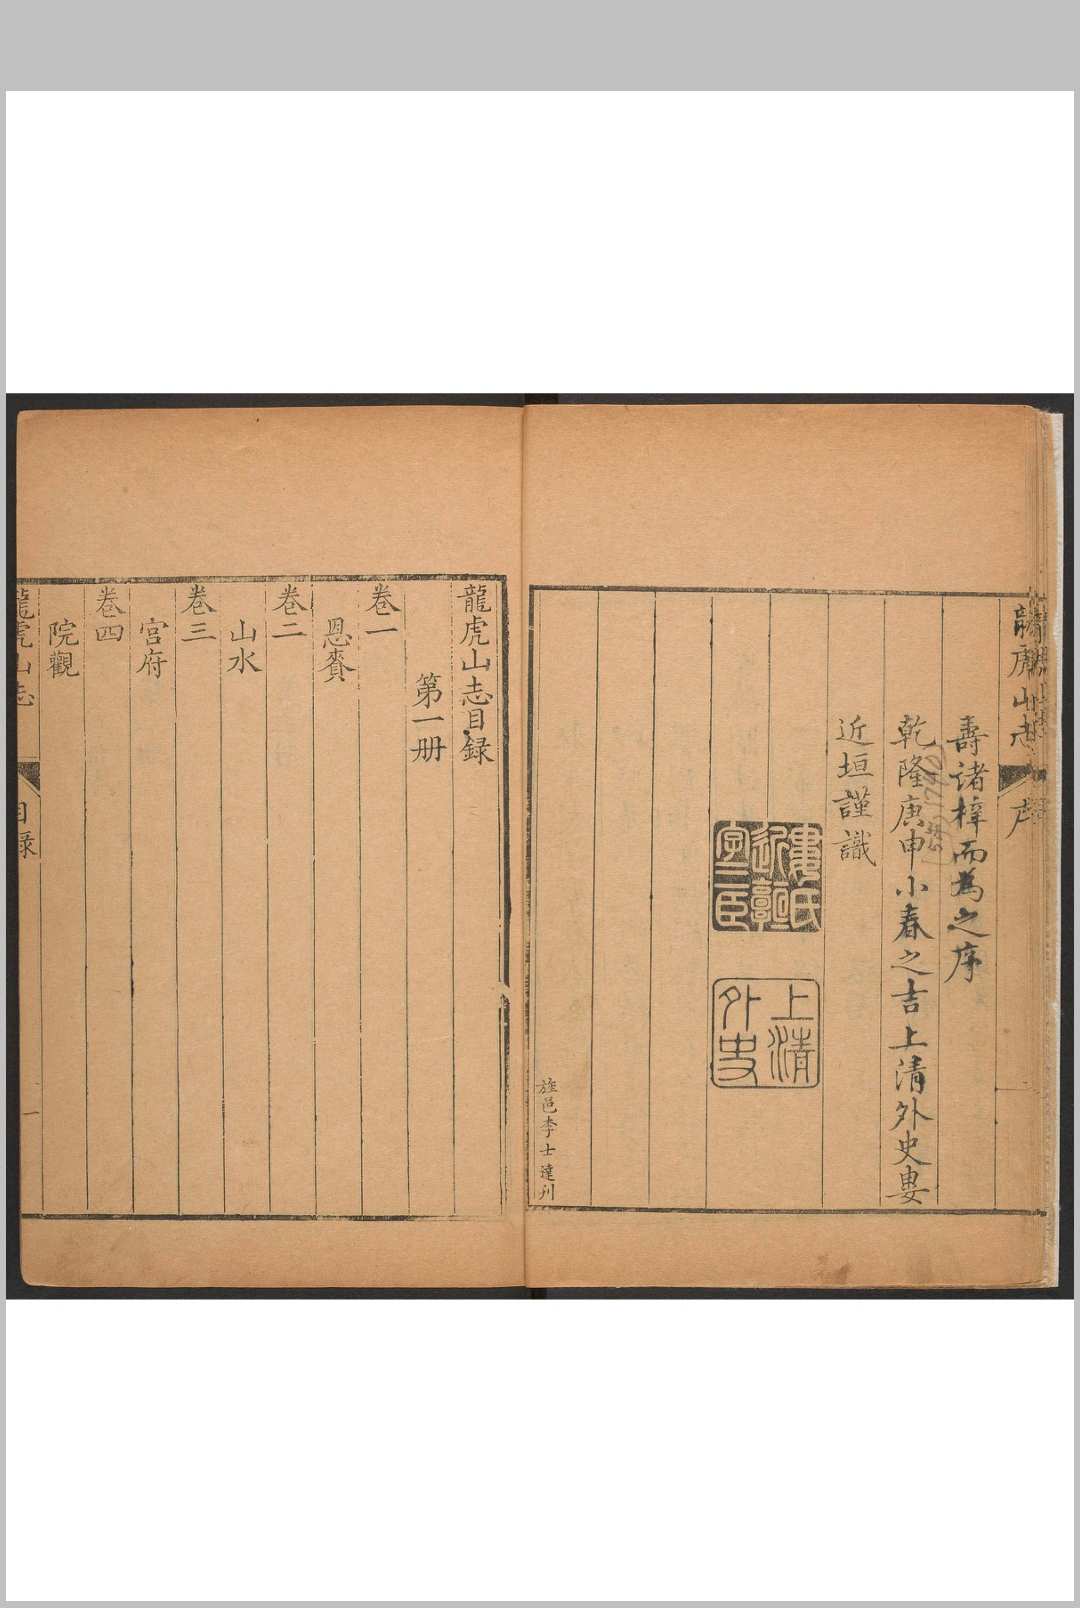 龍虎山志 序
壽諸梓而為之序
乾隆庚申小春之吉上清外史婁
近垣謹識
婁氏
近垣
字三臣
上清
外史
旌邑李士達刋
龍虎山志目録
第一册
卷一
恩賚
卷二
山水
卷三
宮府
卷四
院觀
龍虎山志 目録 一